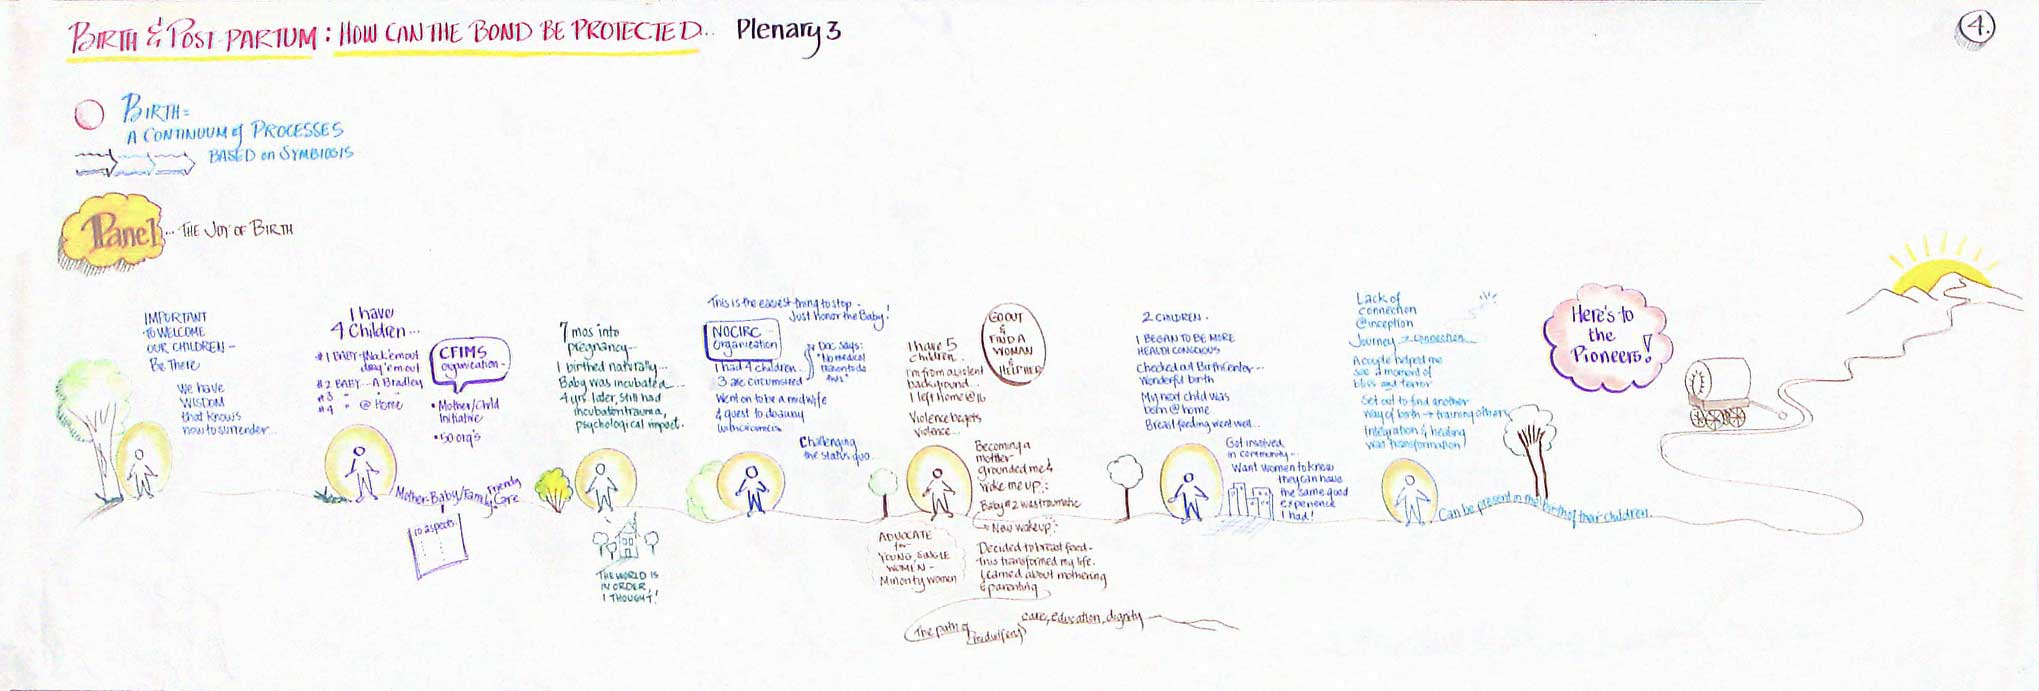 BIRTH & POST-PARTUM : HOW CAN THE BOND BE PROTECTED... Plenary 3
4.
BIRTH =
A CONTINUUM of PROCESSES
BASED on SYMBIOSIS
Panel... THE JOY OF BIRTH
IMPORTANT
TO WELCOME
OUR CHILDREN -
Be There
We have
WISDOM
that knows
how to surrender...
I have
4 Children...
#1 BABY - Knock 'em out
drag 'em out
#2 BABY - A Bradley
#3 " " "
#4 " @ Home
CFIMS
organization -
• Mother/Child
Initiative
• 50 org's
Mother-Baby/Family Friendly Care
10 aspects
7 mos into
pregnancy...
I birthed naturally...
Baby was incubated...
4 yrs. later, still had
incubation trauma,
psychological impact.
THE WORLD IS
IN ORDER,
I THOUGHT!
This is the easiest thing to stop -
Just Honor the Baby!
NOCIRC -
Organization
Doc says:
"No medical
reason to do
this"
I had 4 children...
3 are circumsized
Went on to be a midwife
& quest to do away
w/ circumcis
Challenging
the status quo...
GO OUT
&
FIND A
WOMAN
&
HELP HER
I have 5
children...
I'm from a violent
background...
I left home @ 16
Violence begets
violence...
Becoming a
mother
grounded me &
woke me up...
Baby #2 was traumatic
Now wake up!
Decided to breast feed -
This transformed my life.
Learned about mothering
& parenting
ADVOCATE
for
YOUNG, SINGLE
WOMEN -
Minority women
The path of Midwifery care, education, dignity
2 CHILDREN.
I BEGAN TO BE MORE
HEALTH CONSCIOUS
Checked out Birth Center...
Wonderful birth
My next child was
born @ home
Breast feeding went well...
Got involved
in community...
Want women to know
they can have
the same good
experience
I had!
Lack of
connection
@ inception
Journey → connection
A couple helped me
see a moment of
bliss and terror
Set out to find another
way of birth → training others
Integration & healing
was transformation!
Can be present in the birth of their children.
Here's to
the
Pioneers!